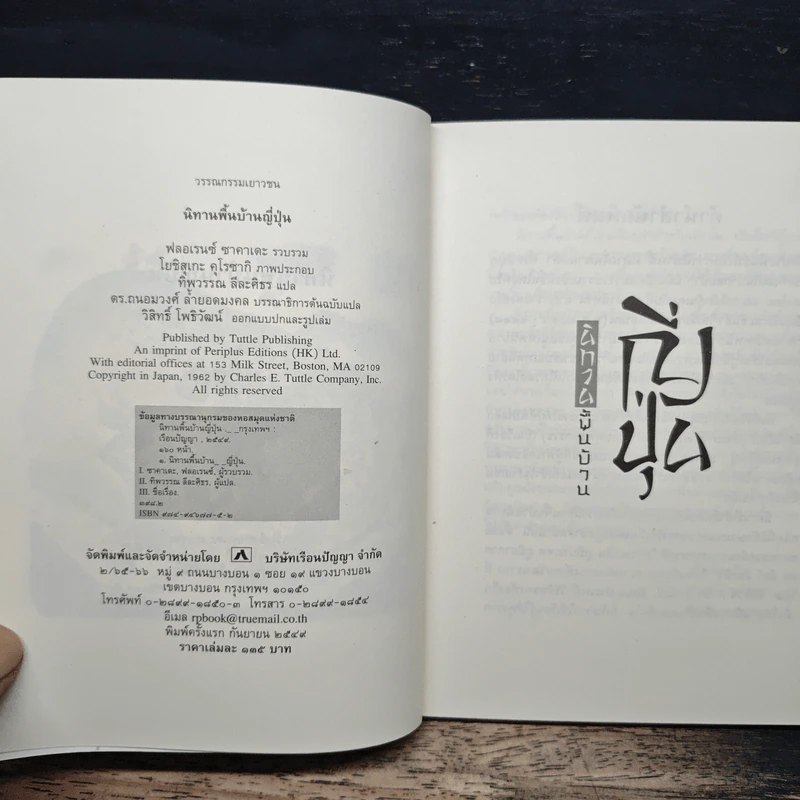 วรรณกรรมเยาวชน
นิทานพื้นบ้านญี่ปุ่น
ฟลอเรนซ์ ซาคาเดะ รวบรวม
โยชิสุเกะ คุโรซากิ ภาพประกอบ
ทิพวรรณ ลีละศิธร แปล
ดร.ถนอมวงศ์ ล้ำยอดมรรคผล บรรณาธิการต้นฉบับแปล
วิสิทธิ์ โพธิวัฒน์ ออกแบบปกและรูปเล่ม
Published by Tuttle Publishing
An imprint of Periplus Editions (HK) Ltd.
With editorial offices at 153 Milk Street, Boston, MA 02109
Copyright in Japan, 1962 by Charles E. Tuttle Company, Inc.
All rights reserved
ข้อมูลทางบรรณานุกรมของหอสมุดแห่งชาติ
นิทานพื้นบ้านญี่ปุ่น._ _กรุงเทพฯ :
เรือนปัญญา , ๒๕๔๙.
๑๖๐ หน้า.
๑. นิทานพื้นบ้าน_ _ญี่ปุ่น.
I. ซาคาเดะ, ฟลอเรนซ์, ผู้รวบรวม.
II. ทิพวรรณ ลีละศิธร, ผู้แปล.
III. ชื่อเรื่อง.
๓๙๘.๒
ISBN ๙๗๔-๙๔๖๗๗-๕-๒
จัดพิมพ์และจัดจำหน่ายโดย บริษัทเรือนปัญญา จำกัด
๒/๖๕-๖๖ หมู่ ๙ ถนนบางบอน ๑ ซอย ๑๙ แขวงบางบอน
เขตบางบอน กรุงเทพฯ ๑๐๑๕๐
โทรศัพท์ ๐-๒๘๙๙-๑๘๕๐-๓ โทรสาร ๐-๒๘๙๙-๑๘๕๔
อีเมล rpbook@truemail.co.th
พิมพ์ครั้งแรก กันยายน ๒๕๔๙
ราคาเล่มละ ๑๓๕ บาท
นิทาน
พื้นบ้าน
ญี่
ปุ่น